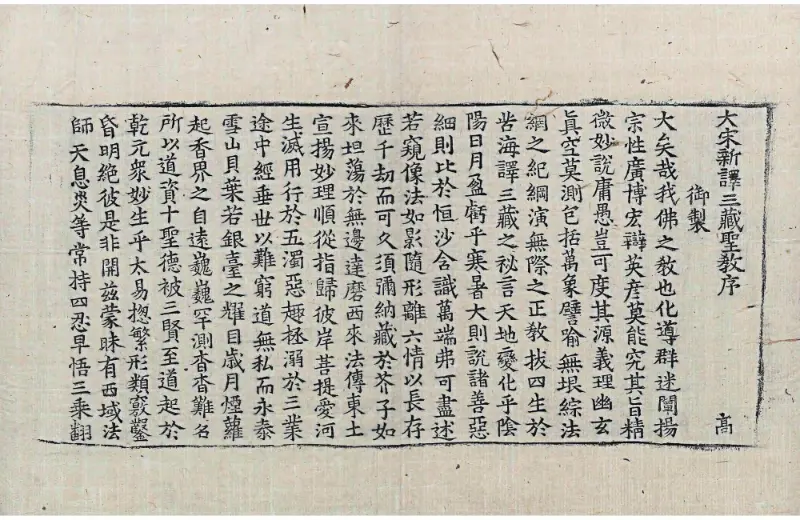 大宋新譯三藏聖敎序
御製
高
大矣哉我佛之敎也化導群迷闡揚
宗性廣博宏辯英彦莫能究其旨精
微妙說庸愚豈可度其源義理幽玄
眞空莫測包括萬象譬喻無垠綜法
網之紀綱演無際之正敎拔四生於
苦海譯三藏之秘言天地變化乎陰
陽日月盈虧乎寒暑大則說諸善惡
細則比於恒沙含識萬端弗可盡述
若窺像法如影隨形離六情以長存
歷千劫而可久須彌納藏於芥子如
來坦蕩於無邊達磨西來法傳東土
宣揚妙理順從指歸彼岸菩提愛河
生滅用行於五濁惡趣拯溺於三業
途中經垂世以難窮道無私而永泰
雪山貝葉若銀臺之耀目歲月煙蘿
起香界之自遠巍巍罕測杳杳難名
所以道資十聖德被三賢至道起於
乾元衆妙生乎太易揔繁形類竅鑿
昏明絕彼是非開茲蒙昧有西域法
師天息災等常持四忍早悟三乘翻